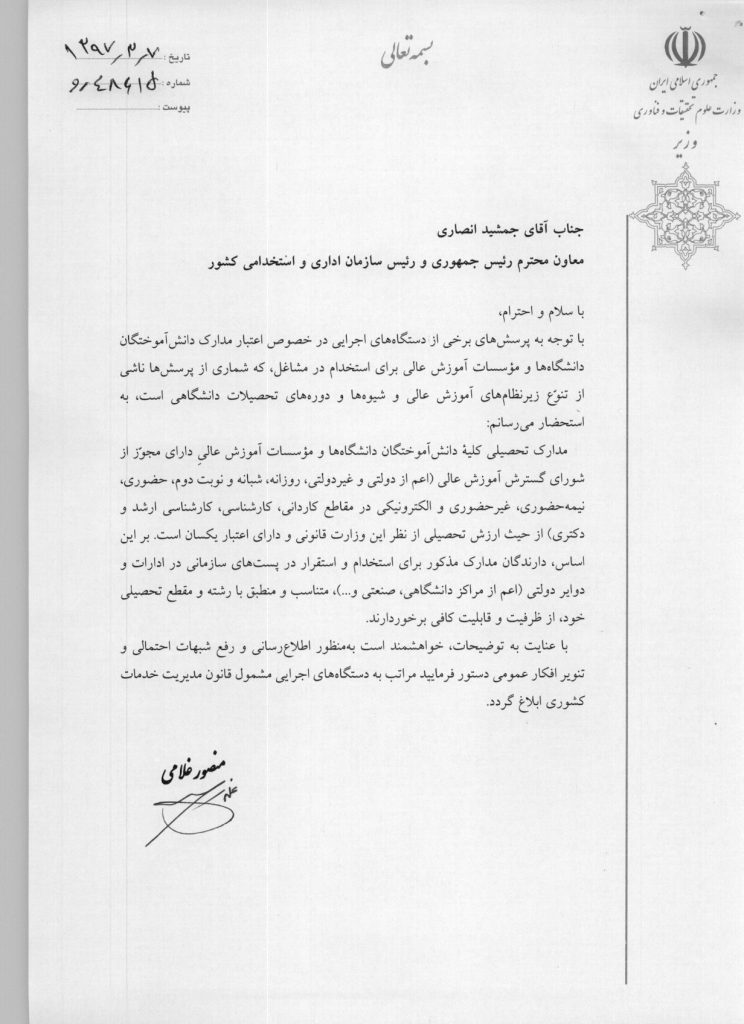 بسمه تعالی
جمهوری اسلامی ایران
وزارت علوم تحقیقات و فناوری
وزیر
تاریخ: ۱۳۹۷٫۳٫۷
شماره:
پیوست:
جناب آقای جمشید انصاری
معاون محترم رئیس جمهوری و رئیس سازمان اداری و استخدامی کشور
با سلام و احترام،
با توجه به پرسش‌های برخی از دستگاه‌های اجرایی در خصوص اعتبار مدارک دانش‌آموختگان
دانشگاه‌ها و مؤسسات آموزش عالی برای استخدام در مشاغل، که شماری از پرسش‌ها ناشی
از تنوّع زیرنظام‌های آموزش عالی و شیوه‌ها و دوره‌های تحصیلات دانشگاهی است، به
استحضار می‌رسانم:
مدارک تحصیلی کلیهٔ دانش‌آموختگان دانشگاه‌ها و مؤسسات آموزش عالیِ دارای مجوّز از
شورای گسترش آموزش عالی (اعم از دولتی و غیردولتی، روزانه، شبانه و نوبت دوم، حضوری،
نیمه‌حضوری، غیرحضوری و الکترونیکی در مقاطع کاردانی، کارشناسی، کارشناسی ارشد و
دکتری) از حیث ارزش تحصیلی از نظر این وزارت قانونی و دارای اعتبار یکسان است. بر این
اساس، دارندگان مدارک مذکور برای استخدام و استقرار در پست‌های سازمانی در ادارات و
دوایر دولتی (اعم از مراکز دانشگاهی، صنعتی و...)، متناسب و منطبق با رشته و مقطع تحصیلی
خود، از ظرفیت و قابلیت کافی برخوردارند.
با عنایت به توضیحات، خواهشمند است به‌منظور اطلاع‌رسانی و رفع شبهات احتمالی و
تنویر افکار عمومی دستور فرمایید مراتب به دستگاه‌های اجرایی مشمول قانون مدیریت خدمات
کشوری ابلاغ گردد.
منصور غلامی